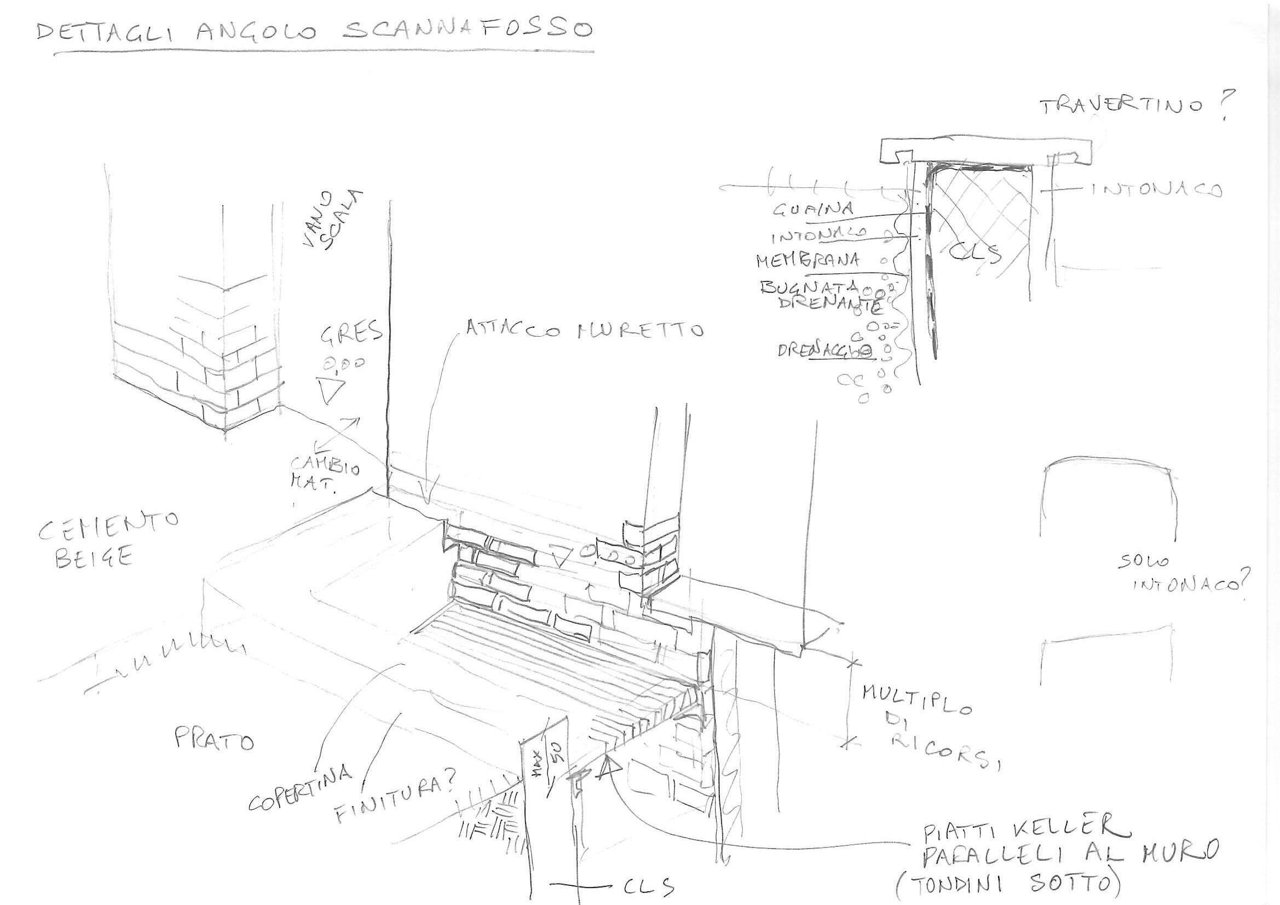 DETTAGLI ANGOLO SCANNAFOSSO
TRAVERTINO?
INTONACO
GUAINA
INTONACO
MEMBRANA
BUGNATA
DRENANTE
DRENAGGIO
CLS
VANO
SCALA
GRES
0,00
ATTACCO MURETTO
CAMBIO
MAT.
CEMENTO
BEIGE
SOLO
INTONACO?
PRATO
COPERTINA
FINITURA?
MAX
50
MULTIPLO
DI
RICORSI
PIATTI KELLER
PARALLELI AL MURO
(TONDINI SOTTO)
CLS